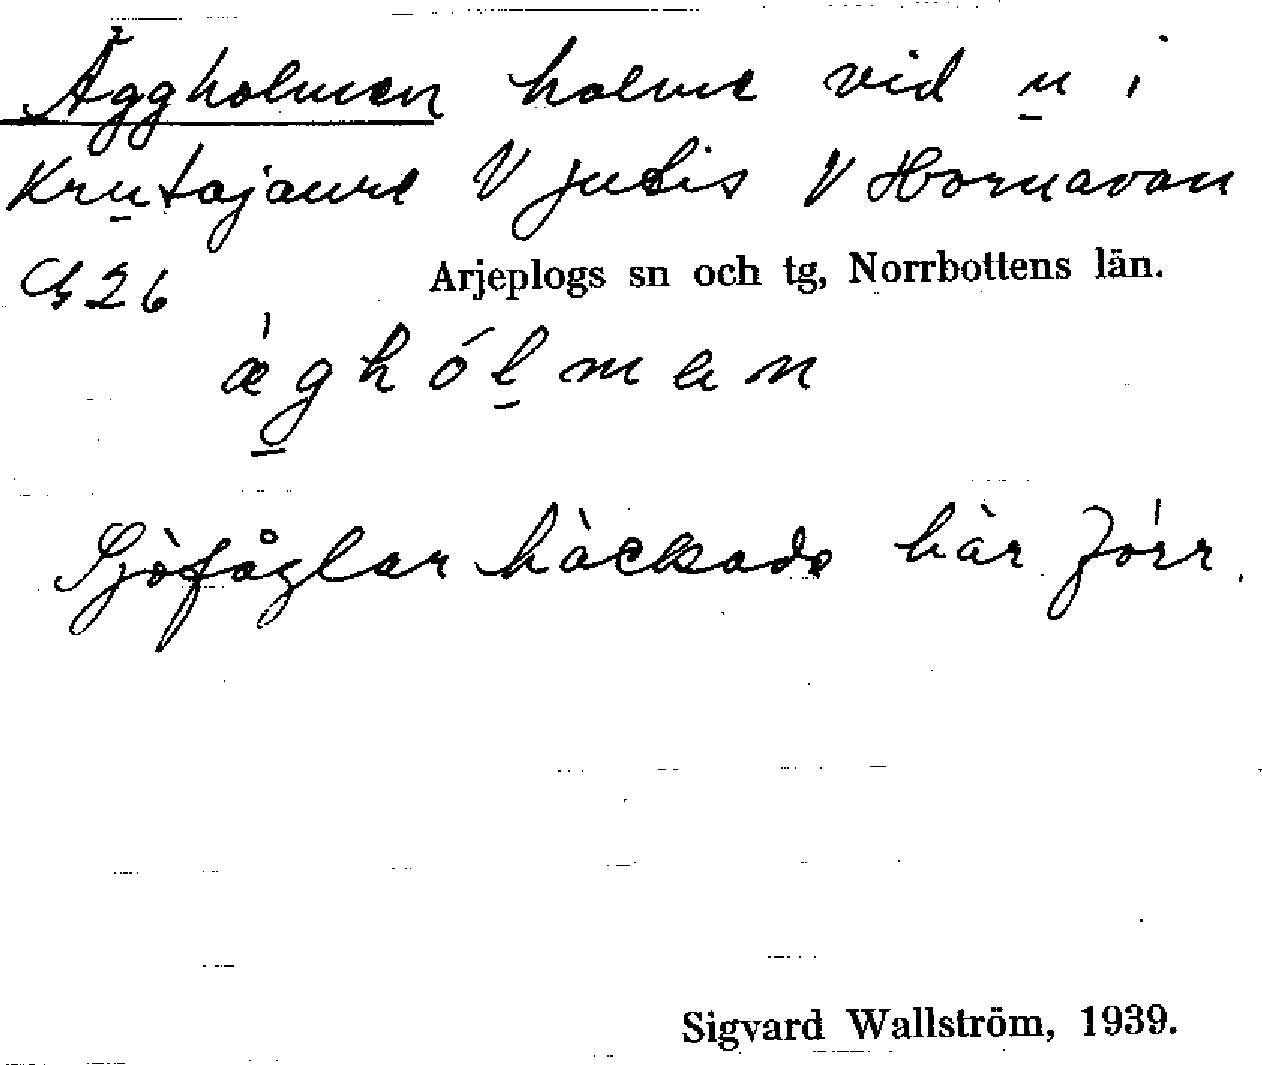 Äggholmen holme vid u i
Krutajaure V Jutis V Hornavan
G 26 Arjeplogs sn och tg, Norrbottens län.
ǽghólman
Sjöfåglar häckade här förr.
Sigvard Wallström, 1939.